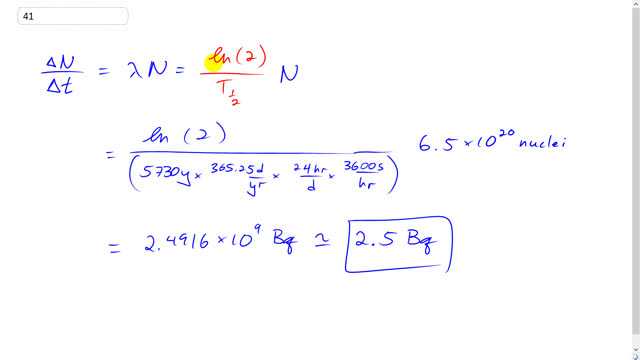 41
ΔN/Δt = λN = ln(2)/T½ N
= ln(2)/(5730y × 365.25d/yr × 24hr/d × 3600s/hr) 6.5×10²⁰ nuclei
= 2.4916×10⁹ Bq ≃ 2.5 Bq